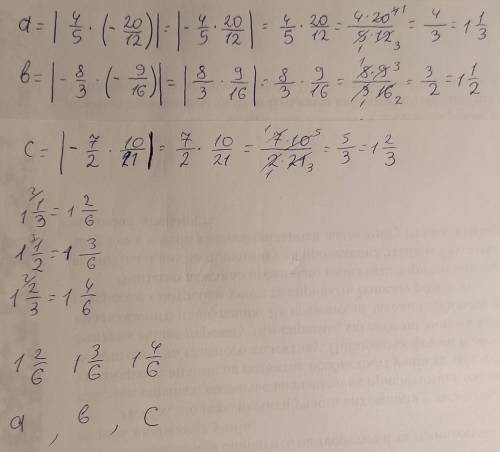 a = | 4/5 · (- 20/12) | = | - 4/5 · 20/12 | = 4/5 · 20/12 = 4·20/5·12 = 4/3 = 1 1/3
в = | - 8/3 · (- 9/16) | = | 8/3 · 9/16 | = 8/3 · 9/16 = 8·9/3·16 = 3/2 = 1 1/2
c = | - 7/2 · 10/21 | = 7/2 · 10/21 = 7·10/2·21 = 5/3 = 1 2/3
1 1/3 = 1 2/6
1 1/2 = 1 3/6
1 2/3 = 1 4/6
1 2/6 1 3/6 1 4/6
a , в , c